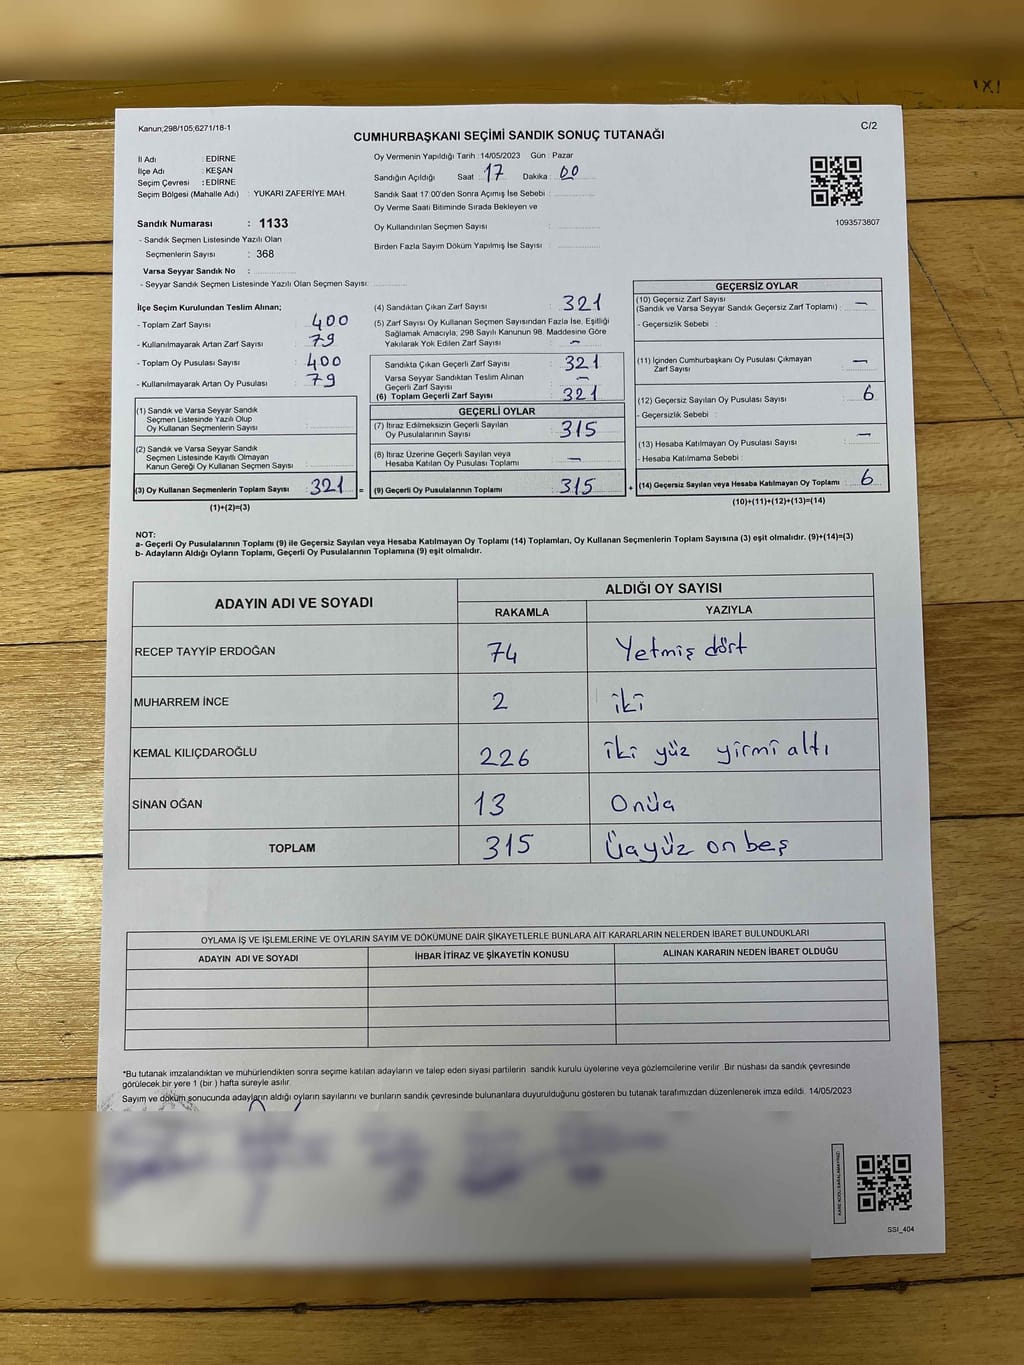 Kanun;298/105;6271/18-1
C/2
CUMHURBAŞKANI SEÇİMİ SANDIK SONUÇ TUTANAĞI
İl Adı : EDİRNE
İlçe Adı : KEŞAN
Seçim Çevresi : EDİRNE
Seçim Bölgesi (Mahalle Adı) : YUKARI ZAFERİYE MAH.
Sandık Numarası : 1133
- Sandık Seçmen Listesinde Yazılı Olan
Seçmenlerin Sayısı : 368
Varsa Seyyar Sandık No :
- Seyyar Sandık Seçmen Listesinde Yazılı Olan Seçmen Sayısı:
Oy Vermenin Yapıldığı Tarih :14/05/2023 Gün : Pazar
Sandığın Açıldığı Saat : 17 Dakika : 00
Sandık Saat 17:00'den Sonra Açımış İse Sebebi :
Oy Verme Saati Bitiminde Sırada Bekleyen ve
Oy Kullandırılan Seçmen Sayısı :
Birden Fazla Sayım Döküm Yapılmış İse Sayısı :
1093573807
İlçe Seçim Kurulundan Teslim Alınan;
- Toplam Zarf Sayısı : 400
- Kullanılmayarak Artan Zarf Sayısı : 79
- Toplam Oy Pusulası Sayısı : 400
- Kullanılmayarak Artan Oy Pusulası : 79
(1) Sandık ve Varsa Seyyar Sandık
Seçmen Listesinde Yazılı Olup
Oy Kullanan Seçmenlerin Sayısı :
(2) Sandık ve Varsa Seyyar Sandık
Seçmen Listesinde Kayıtlı Olmayan
Kanun Gereği Oy Kullanan Seçmen Sayısı :
(3) Oy Kullanan Seçmenlerin Toplam Sayısı : 321 =
(1)+(2)=(3)
(4) Sandıktan Çıkan Zarf Sayısı : 321
(5) Zarf Sayısı Oy Kullanan Seçmen Sayısından Fazla İse, Eşitliği
Sağlamak Amacıyla, 298 Sayılı Kanunun 98. Maddesine Göre
Yakılarak Yok Edilen Zarf Sayısı : -
Sandıkta Çıkan Geçerli Zarf Sayısı : 321
Varsa Seyyar Sandıktan Teslim Alınan
Geçerli Zarf Sayısı : -
(6) Toplam Geçerli Zarf Sayısı : 321
GEÇERLİ OYLAR
(7) İtiraz Edilmeksizin Geçerli Sayılan
Oy Pusulalarının Sayısı : 315
(8) İtiraz Üzerine Geçerli Sayılan veya
Hesaba Katılan Oy Pusulası Toplamı : -
(9) Geçerli Oy Pusulalarının Toplamı : 315 +
GEÇERSİZ OYLAR
(10) Geçersiz Zarf Sayısı
(Sandık ve Varsa Seyyar Sandık Geçersiz Zarf Toplamı) : -
- Geçersizlik Sebebi :
(11) İçinden Cumhurbaşkanı Oy Pusulası Çıkmayan
Zarf Sayısı : -
(12) Geçersiz Sayılan Oy Pusulası Sayısı : 6
- Geçersizlik Sebebi :
(13) Hesaba Katılmayan Oy Pusulası Sayısı : -
- Hesaba Katılmama Sebebi :
(14) Geçersiz Sayılan veya Hesaba Katılmayan Oy Toplamı : 6
(10)+(11)+(12)+(13)=(14)
NOT:
a- Geçerli Oy Pusulalarının Toplamı (9) ile Geçersiz Sayılan veya Hesaba Katılmayan Oy Toplamı (14) Toplamları, Oy Kullanan Seçmenlerin Toplam Sayısına (3) eşit olmalıdır. (9)+(14)=(3)
b- Adayların Aldığı Oyların Toplamı, Geçerli Oy Pusulalarının Toplamına (9) eşit olmalıdır.
ADAYIN ADI VE SOYADI
ALDIĞI OY SAYISI
RAKAMLA YAZIYLA
RECEP TAYYİP ERDOĞAN 74 Yetmiş dört
MUHARREM İNCE 2 iki
KEMAL KILIÇDAROĞLU 226 iki yüz yirmi altı
SİNAN OĞAN 13 Onüç
TOPLAM 315 Üçyüz on beş
OYLAMA İŞ VE İŞLEMLERİNE VE OYLARIN SAYIM VE DÖKÜMÜNE DAİR ŞİKAYETLERLE BUNLARA AİT KARARLARIN NELERDEN İBARET BULUNDUKLARI
ADAYIN ADI VE SOYADI İHBAR İTİRAZ VE ŞİKAYETİN KONUSU ALINAN KARARIN NEDEN İBARET OLDUĞU
*Bu tutanak imzalandıktan ve mühürlendikten sonra seçime katılan adayların ve talep eden siyasi partilerin sandık kurulu üyelerine veya gözlemcilerine verilir. Bir nüshası da sandık çevresinde
görülecek bir yere 1 (bir ) hafta süreyle asılır.
Sayım ve döküm sonucunda adayların aldığı oyların sayılarını ve bunların sandık çevresinde bulunanlara duyurulduğunu gösteren bu tutanak tarafımızdan düzenlenerek imza edildi. 14/05/2023
SSI_404